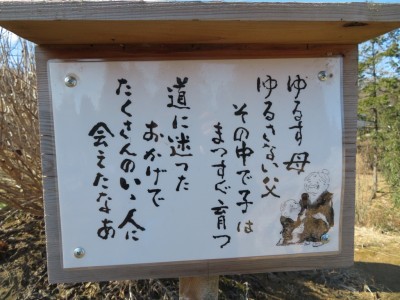 ゆるす母
ゆるさない父
その中で子は
まっすぐ育つ
道に迷った
おかげで
たくさんのいゝ人に
会えたなあ